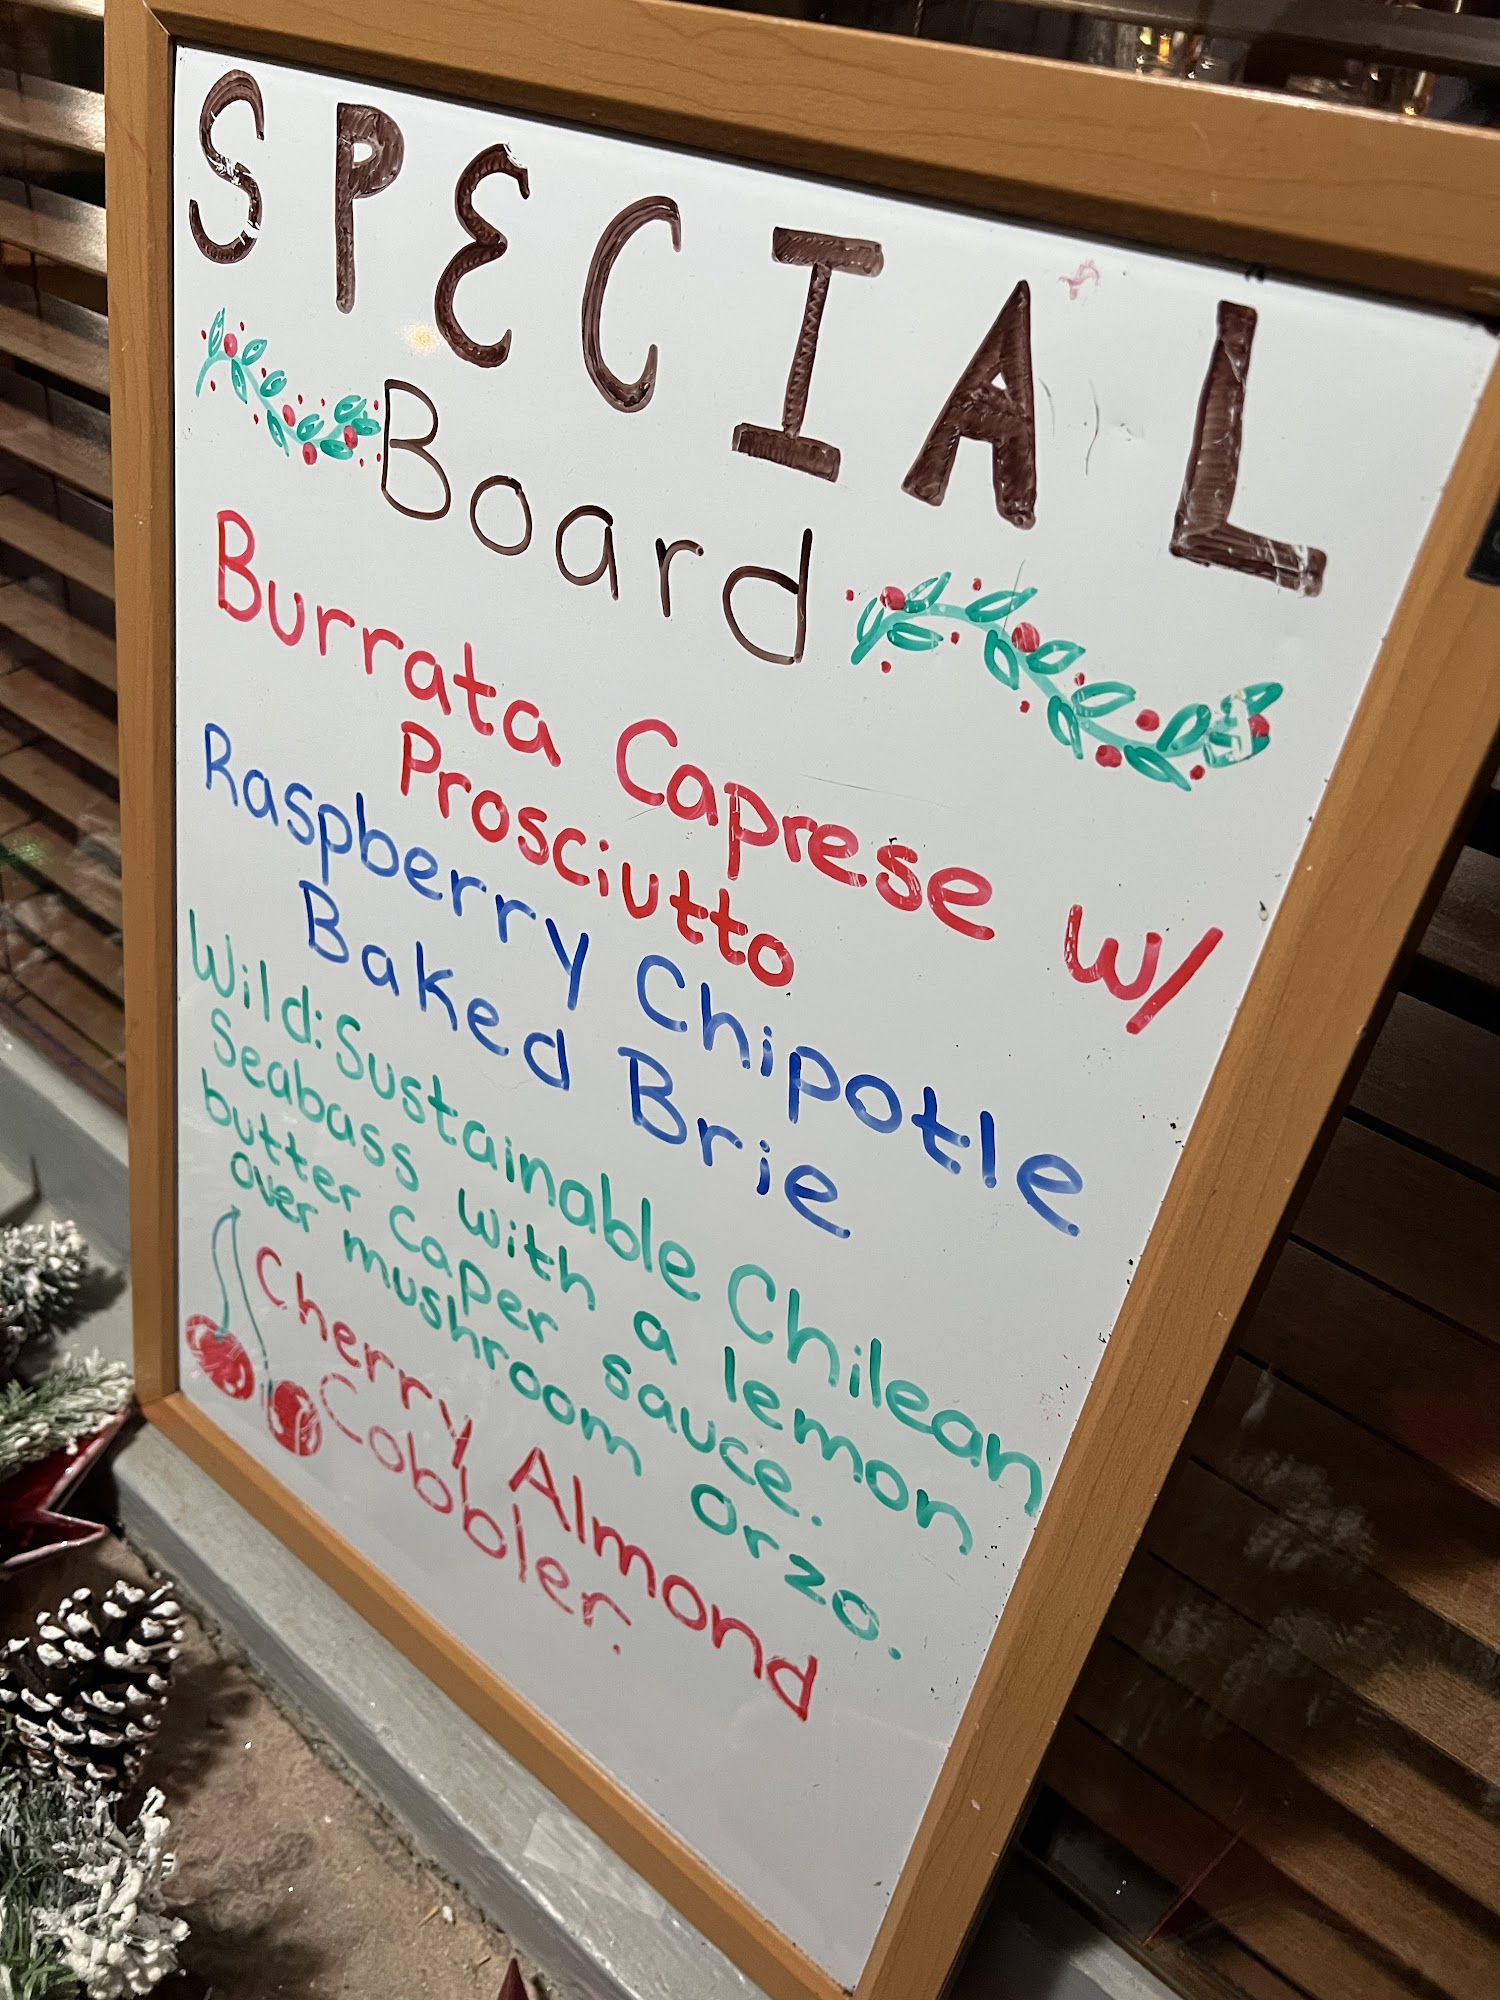 SPECIAL
Board
Burrata Caprese w/
Prosciutto
Raspberry Chipotle
Baked Brie
Wild:Sustainable Chilean
Seabass with a lemon
butter caper sauce.
over mushroom Orzo.
Cherry Almond
Cobbler.